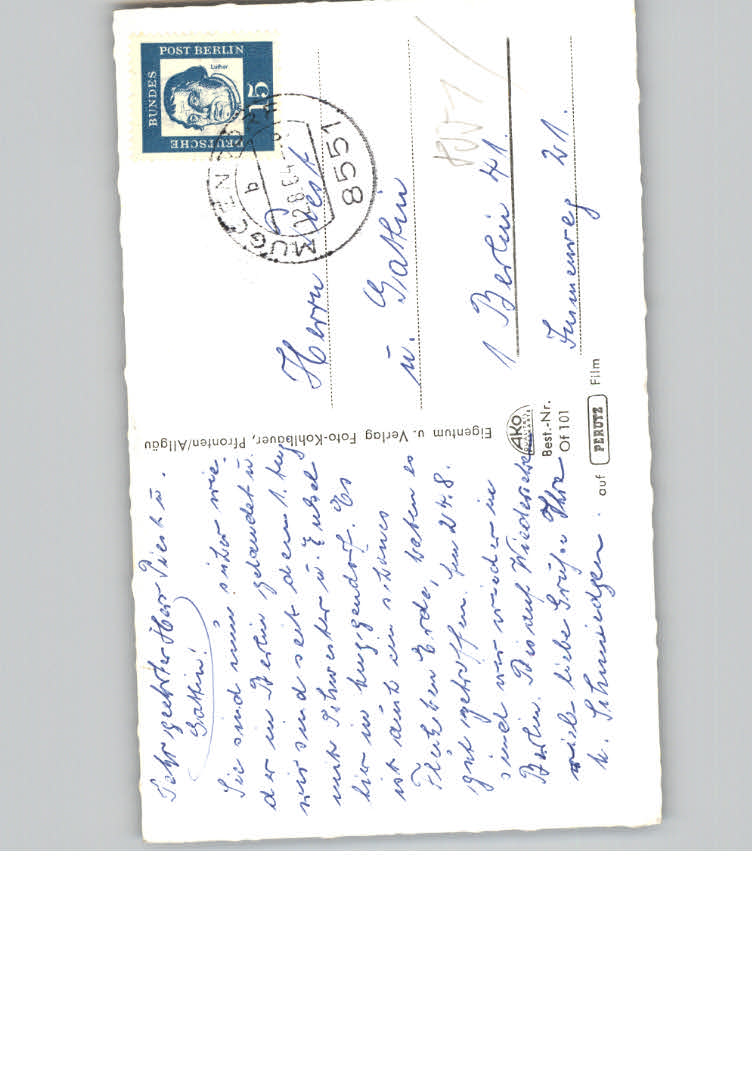 Sehr geehrter Herr Piest u.
Gattin!
Sie sind nun sicher wie-
der in Berlin gelandet u.
wir sind seit dem 1. Aug.
mit Schwester u. Enkel
hier in Muggendorf. Es
ist auch ein schönes
Fleckchen Erde, haben es
gut getroffen. Am 24.8.
sind wir wieder in
Berlin. Bis auf Wiedersehen
viele liebe Grüße Ihre
Schmiedgen.
Eigentum u. Verlag Foto-Kohlbauer, Pfronten/Allgäu
AKO
Best.-Nr.
Of 101
auf PERUTZ Film
DEUTSCHE BUNDESPOST BERLIN
Luther
15
8551 MUGGENDORF
b
12.8.64
Herrn Piest
u. Gattin
1 Berlin 41.
Immenweg 21.